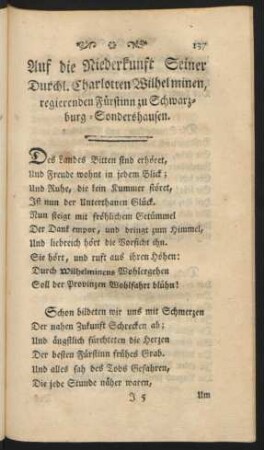 137
Auf die Niederkunft Seiner
Durchl. Charlotten Wilhelminen,
regierenden Fürstinn zu Schwarz-
burg-Sondershausen.
Des Landes Bitten sind erhöret,
Und Freude wohnt in jedem Blick;
Und Ruhe, die kein Kummer störet,
Ist nun der Unterthanen Glück.
Nun steigt mit fröhlichem Getümmel
Der Dank empor, und dringt zum Himmel,
Und liebreich hört die Vorsicht ihn.
Sie hört, und ruft aus ihren Höhen:
Durch Wilhelminens Wohlergehen
Soll der Provinzen Wohlfahrt blühn!
Schon bildeten wir uns mit Schmerzen
Der nahen Zukunft Schrecken ab;
Und ängstlich fürchteten die Herzen
Der besten Fürstinn frühes Grab.
Und alles sah des Tods Gefahren,
Die jede Stunde näher waren,
J 5
Um